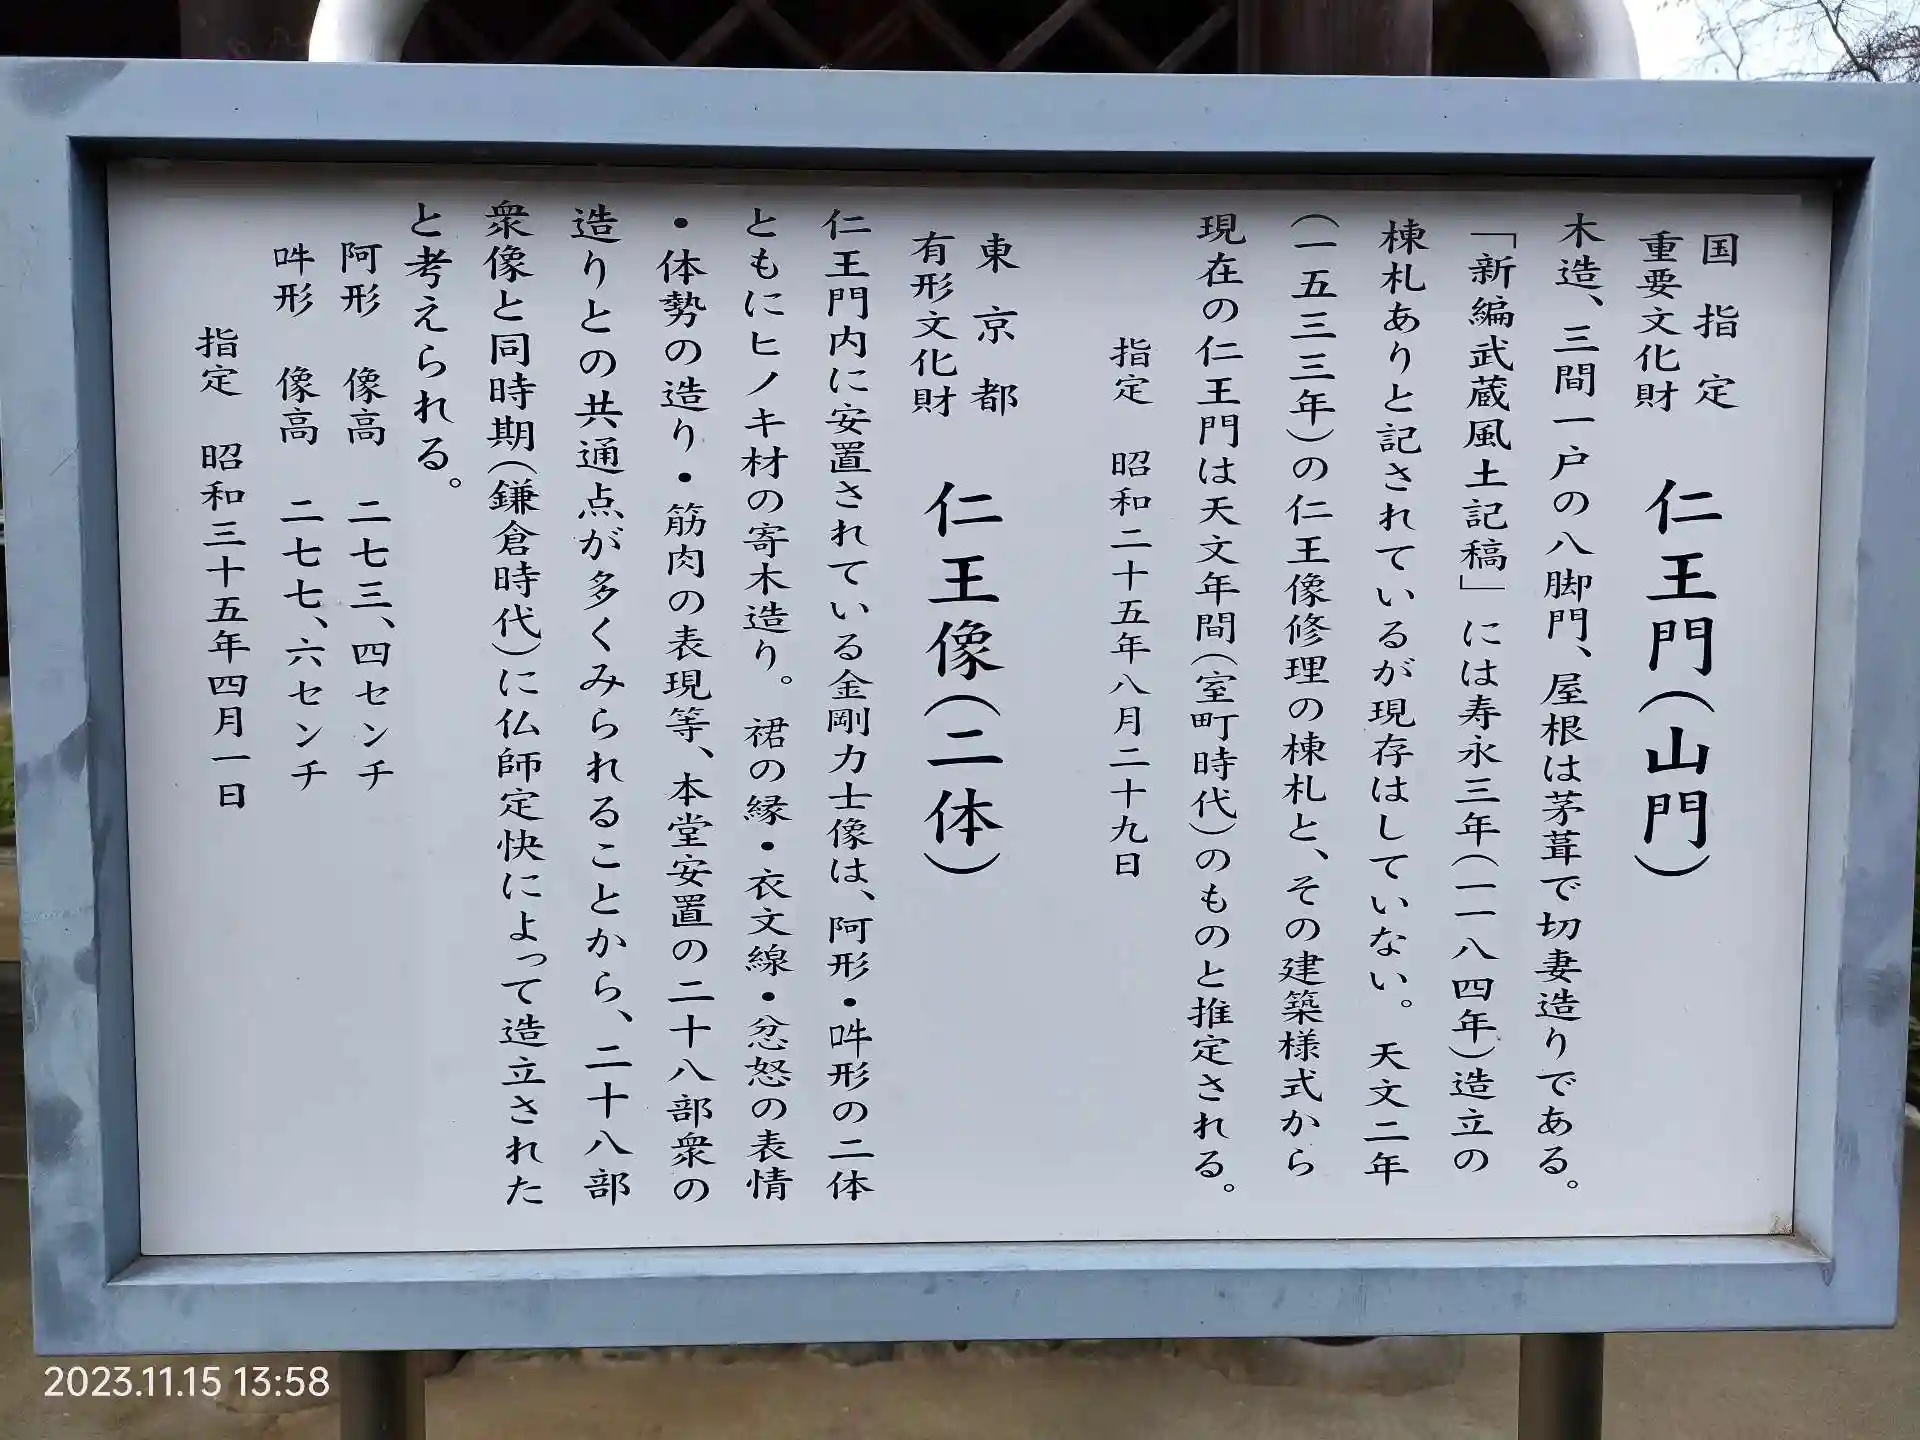 国指定
重要文化財
仁王門(山門)
木造、三間一戸の八脚門、屋根は茅葺で切妻造りである。
「新編武蔵風土記稿」には寿永三年(一一八四年)造立の
棟札ありと記されているが現存はしていない。天文二年
(一五三三年)の仁王像修理の棟札と、その建築様式から
現在の仁王門は天文年間(室町時代)のものと推定される。
指定 昭和二十五年八月二十九日
東京都
有形文化財
仁王像(二体)
仁王門内に安置されている金剛力士像は、阿形・吽形の二体
ともにヒノキ材の寄木造り。裙の縁・衣文線・忿怒の表情
・体勢の造り・筋肉の表現等、本堂安置の二十八部衆の
造りとの共通点が多くみられることから、二十八部
衆像と同時期(鎌倉時代)に仏師定快によって造立された
と考えられる。
阿形 像高 二七三、四センチ
吽形 像高 二七七、六センチ
指定 昭和三十五年四月一日
2023.11.15 13:58